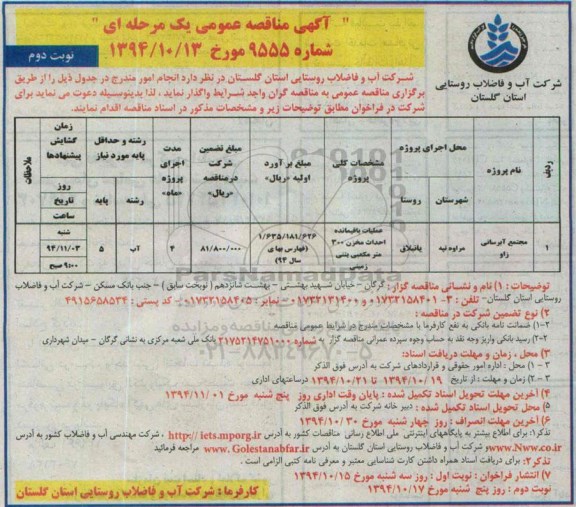 " آگهی مناقصه عمومی یک مرحله ای "
شماره ۹۵۵۵ مورخ ۱۳۹۴/۱۰/۱۳
نوبت دوم
شرکت آب و فاضلاب روستایی
استان گلستان
شرکت آب و فاضلاب روستایی استان گلستان در نظر دارد انجام امور مندرج در جدول ذیل را از طریق
برگزاری مناقصه عمومی به مناقصه گران واجد شرایط واگذار نماید ، لذا بدینوسیله دعوت می نماید برای
شرکت در فراخوان مطابق توضیحات زیر و مشخصات مذکور در اسناد مناقصه اقدام نمایند.
ردیف
نام پروژه
محل اجرای پروژه
شهرستان
روستا
مشخصات کلی پروژه
مبلغ برآورد اولیه «ریال»
مبلغ تضمین شرکت درمناقصه «ریال»
مدت اجرای پروژه «ماه»
رشته و حداقل پایه مورد نیاز
رشته
پایه
زمان گشایش پیشنهادها
روز
تاریخ
ساعت
ملاحظات
۱
مجتمع آبرسانی زاو
مراوه تپه
یانبلاق
عملیات باقیمانده احداث مخزن ۳۰۰ متر مکعبی بتنی زمینی
۱/۶۳۵/۱۸۱/۶۲۶ (فهارس بهای سال ۹۴)
۸۱/۸۰۰/۰۰۰
۴
آب
۵
شنبه
۹۴/۱۱/۰۳
۹:۰۰ صبح
توضیحات : ۱) نام و نشانی مناقصه گزار : گرگان – خیابان شهید بهشتی – بهشت شانزدهم (نوبخت سابق) – جنب بانک مسکن – شرکت آب و فاضلاب
روستایی استان گلستان– تلفن : ۳- ۰۱۷۳۲۱۵۸۴۰۱ و ۰۱۷۳۲۱۳۱۴۰۰ – نمابر : ۰۱۷۳۲۱۵۸۴۰۵ کد پستی : ۴۹۱۵۶۵۸۵۳۴
۲) نوع تضمین شرکت در مناقصه :
۲-۱) ضمانت نامه بانکی به نفع کارفرما با مشخصات مندرج در شرایط عمومی مناقصه
۲-۲) رسید بانکی واریز وجه نقد به حساب وجوه سپرده عمرانی مناقصه گزار به شماره ۲۱۷۵۲۱۴۷۵۱۰۰۰ بانک ملی شعبه مرکزی به نشانی گرگان – میدان شهرداری
۳) محل ، زمان و مهلت دریافت اسناد:
۳-۱) محل : اداره امور حقوقی و قراردادهای شرکت به آدرس فوق الذکر
۳-۲) زمان و مهلت : از تاریخ ۱۳۹۴/۱۰/۱۹ تا ۱۳۹۴/۱۰/۲۱ درساعتهای اداری
۴) آخرین مهلت تحویل اسناد تکمیل شده : پایان وقت اداری روز پنج شنبه مورخ ۱۳۹۴/۱۱/۰۱
۵) محل تحویل اسناد تکمیل شده : دبیر خانه شرکت به آدرس فوق الذکر
۶) آخرین مهلت انصراف : روز چهار شنبه مورخ ۱۳۹۴/۱۰/۳۰
تذکر۱: برای اطلاع بیشتر به پایگاههای اینترنتی ملی اطلاع رسانی مناقصات کشور به آدرس http://iets.mporg.ir ، شرکت مهندسی آب و فاضلاب کشور به آدرس
www.Nww.co.ir و شرکت آب و فاضلاب روستایی استان گلستان به آدرس www.Golestanabfar.ir مراجعه فرمائید
تذکر۲: برای دریافت اسناد همراه داشتن کارت شناسایی معتبر و معرفی نامه کتبی الزامی است .
۷) انتشار فراخوان : نوبت اول : روز سه شنبه مورخ ۱۳۹۴/۱۰/۱۵
نوبت دوم : روز پنج شنبه مورخ ۱۳۹۴/۱۰/۱۷
کارفرما : شرکت آب و فاضلاب روستایی استان گلستان
ParsNamadData
۰۲۱-۸۸۳۴۹۶۷۰-۵